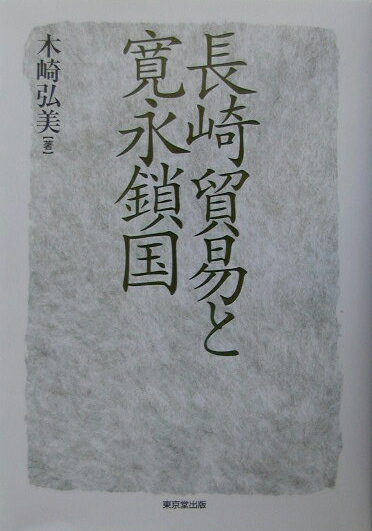 長崎貿易と
寛永鎖国
木崎弘美【著】
東京堂出版